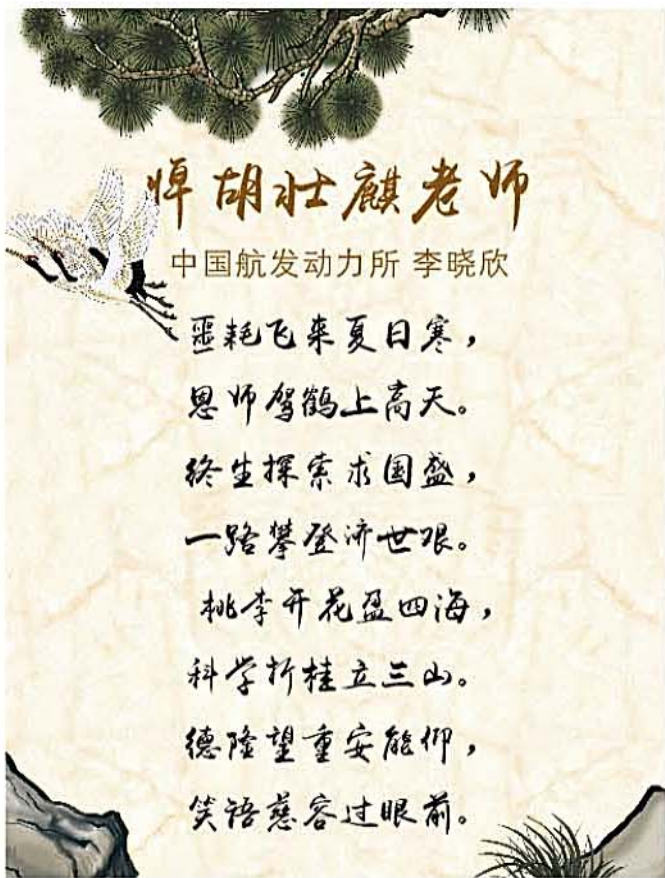 悼胡壮麒老师
中国航发动力所 李晓欣
噩耗飞来夏日寒，
恩师驾鹤上高天。
终生探索求国盛，
一路攀登济世艰。
桃李开花盈四海，
科学折桂立三山。
德隆望重安能仰，
笑语慈容过眼前。